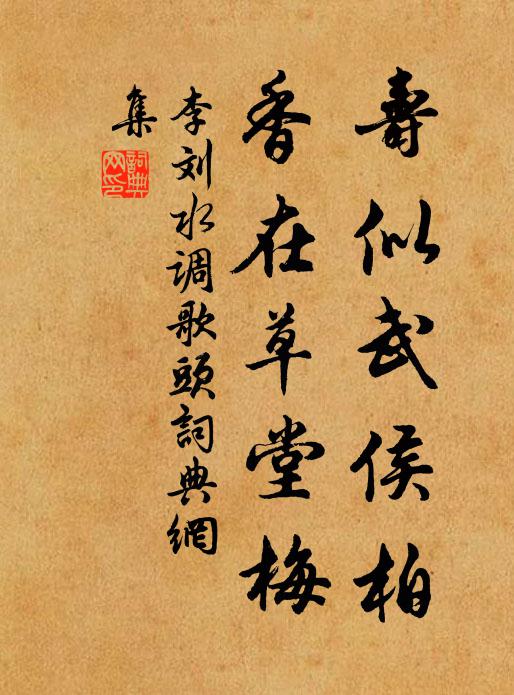 壽似武侯柏
香在草堂梅
李刘水调歌頭詞典網
集
詞典
网印